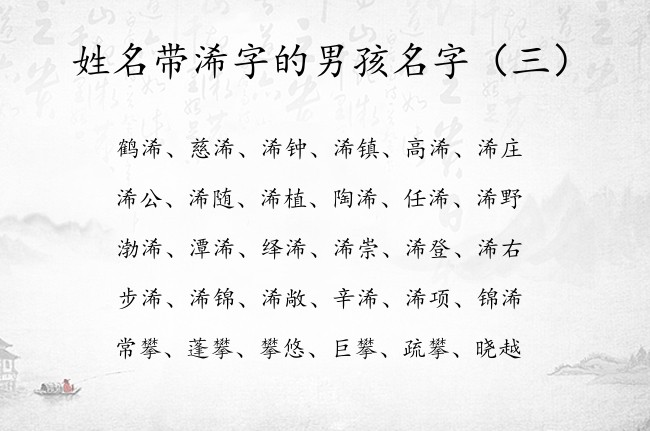 姓名带浠字的男孩名字（三）
鹤浠、慈浠、浠钟、浠镇、高浠、浠庄
浠公、浠随、浠植、陶浠、任浠、浠野
渤浠、潭浠、绎浠、浠崇、浠登、浠右
步浠、浠锦、浠敞、辛浠、浠项、锦浠
常攀、蓬攀、攀悠、巨攀、疏攀、晓越